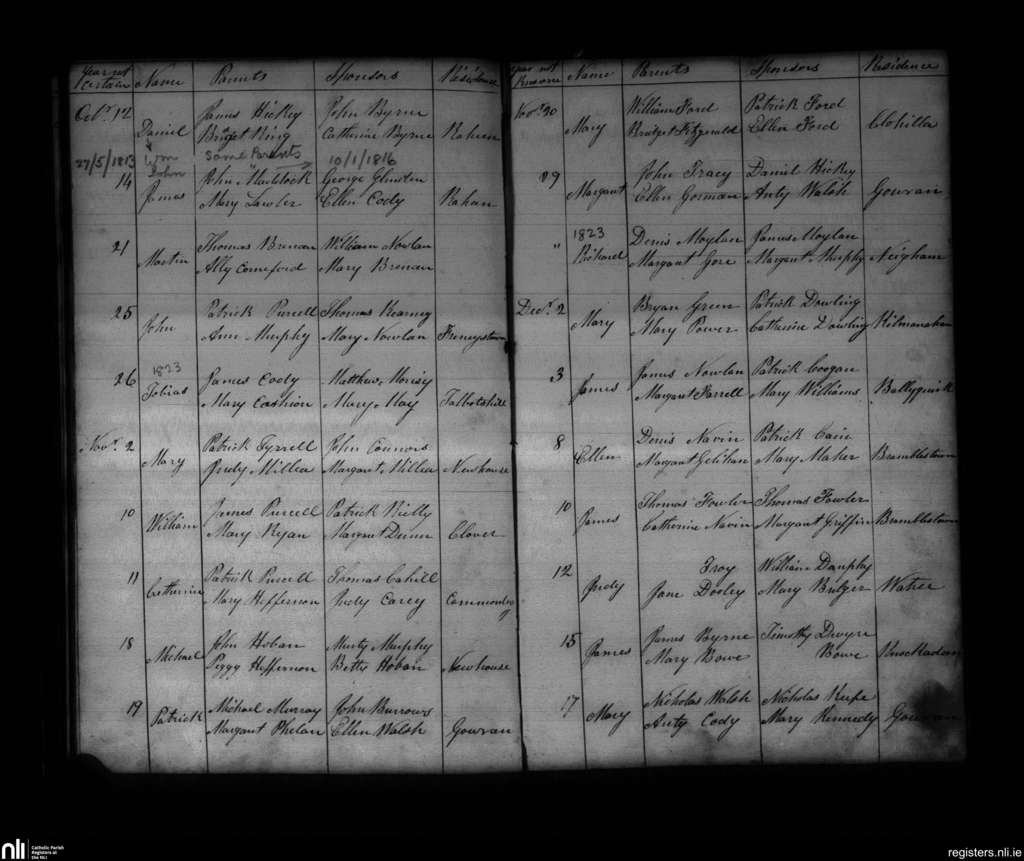 Year not certain Name Parents Sponsors Residence
Octr. 12 James Hickey John Byrne
Daniel Bridget King Catherine Byrne Rahan
27/5/1813 Wm Same Parents 10/1/1816
John
14 John Maddock George
James Mary Lawler Ellen Cody Rahan
21 Thomas Brenan William Nowlan
Martin Ally Comeford Mary Brenan
25 Patrick Purcell Thomas Kearney
John Ann Murphy Mary Nowlan Freneystown
26 1823 James Cody Matthew
Tobias Mary Cashion Mary May Talbotshill
Novr. 2 Patrick Tyrrell John Connors
Mary Judy Millea Margaret Millea Newhouse
10 James Purcell Patrick Rielly
William Mary Ryan Margaret Clover
11 Patrick Purcell Thomas Cahill
Catherine Mary Heffernon Judy Carey
18 John Hoban Murty Murphy
Michael Peggy Heffernon Betty Hoban Newhouse
19 Michael Murray John Burrows
Patrick Margaret Phelan Ellen Walsh Gowran
Year not Name Parents Sponsors Residence
Novr. 20 William Ford Patrick Ford
Mary Bridget Fitzgerald Ellen Ford Clohilla
29 John Tracy Daniel Hickey
Margaret Ellen Gorman Anty Walsh Gowran
" 1823 Denis Moylan James Moylan
Richard Margaret Gore Margaret Murphy Neigham
Decr. 2 Bryan Green Patrick Dowling
Mary Mary Power Catherine Dowling Kilmanahan
3 James Nowlan Patrick Coogan
James Margaret Farrell Mary Williams Ballyquirk
8 Denis Navin Patrick Cain
Ellen Margaret Mary Maher Bramblestown
10 Thomas Fowler Thomas Fowler
James Catherine Navin Margaret Griffin Bramblestown
12 Troy William Danphy
Judy Jane Dooley Mary Bulger
15 James Byrne Timothy Dwyre
James Mary Bowe Bowe
17 Nicholas Walsh Nicholas Keefe
Mary Anty Cody Mary Kennedy Gowran
nli
Catholic Parish
Registers at
the NLI
registers.nli.ie